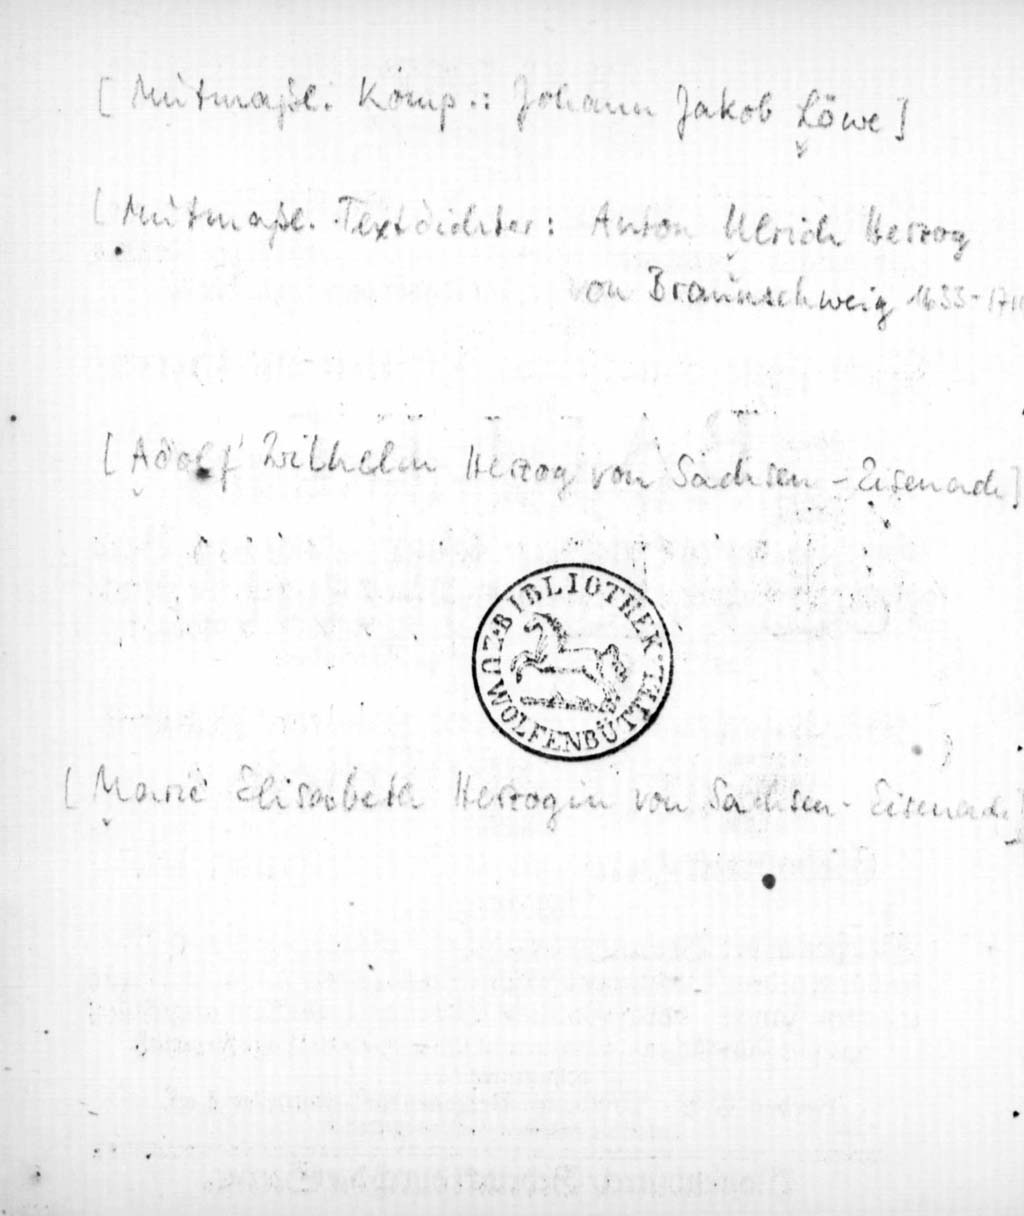 [Mutmaßl. Komp.: Johann Jakob Löwe]
[Mutmaßl. Textdichter: Anton Ulrich Herzog
von Braunschweig 1633-171
[Adolf Wilhelm Herzog von Sachsen-Eisenach]
BIBLIOTHEK
ZU WOLFENBÜTTEL
[Marie Elisabeth Herzogin von Sachsen-Eisenach]